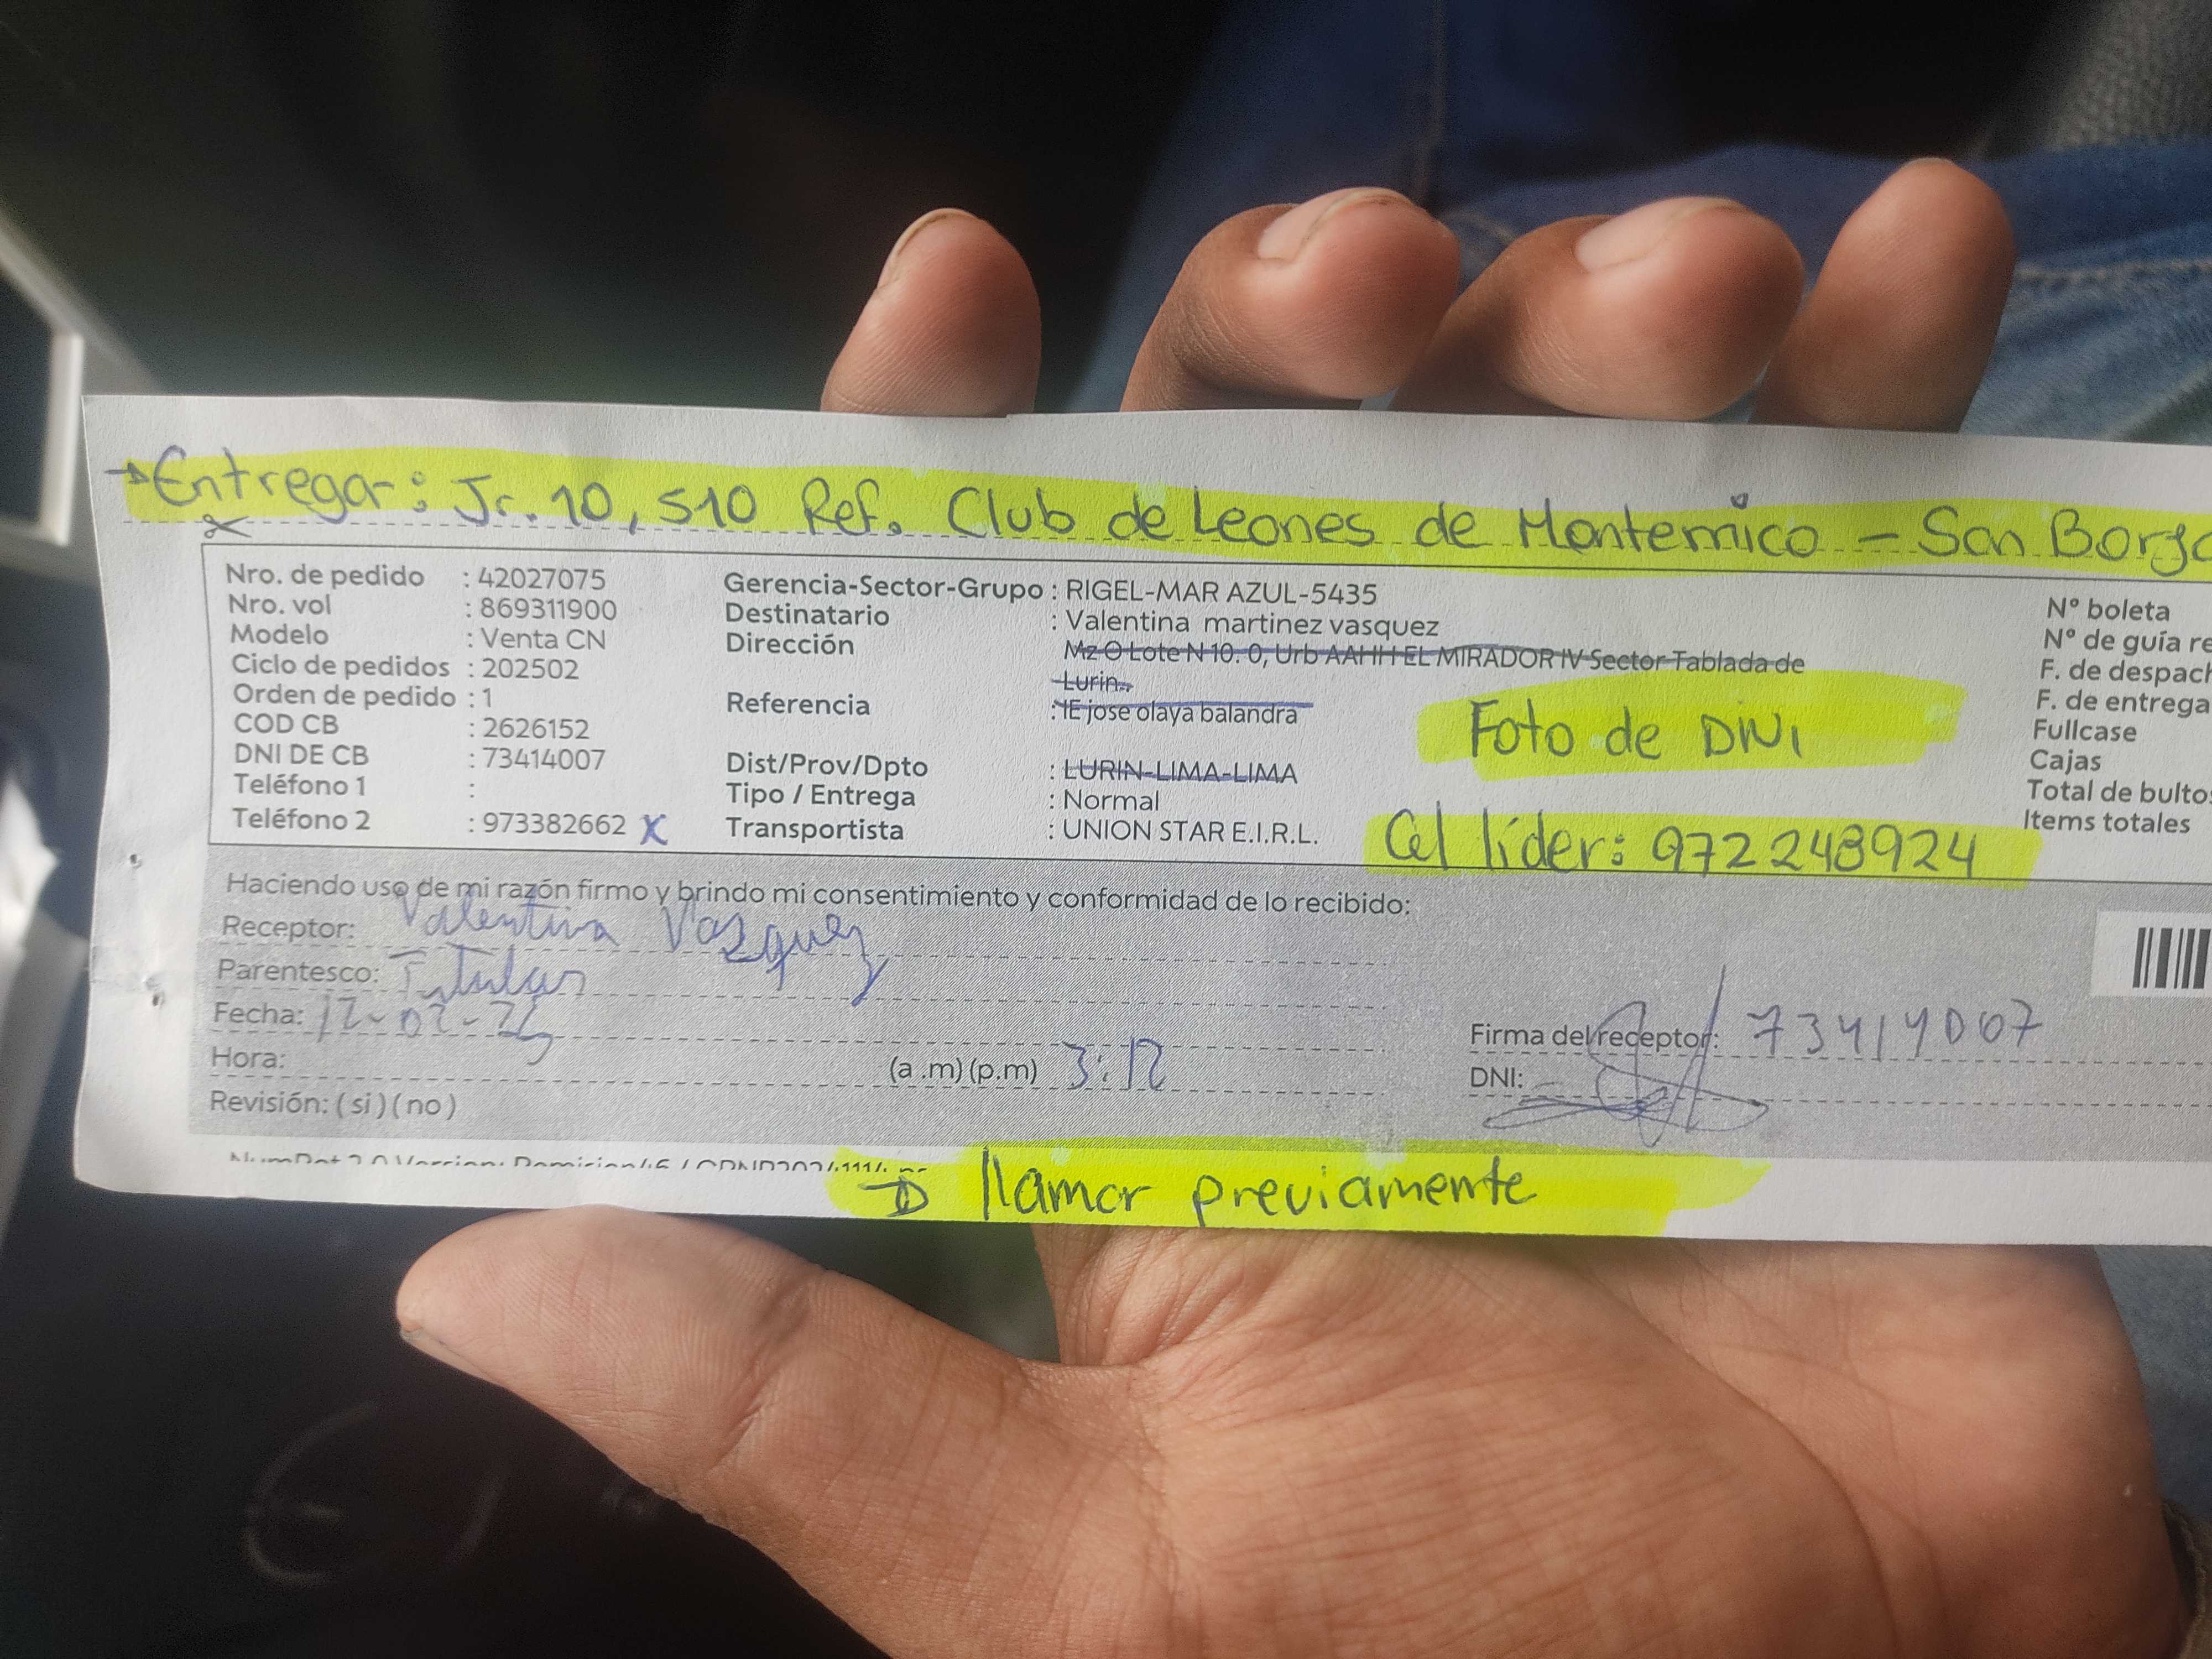 →Entrega: Jr. 10, 510 Ref. Club de Leones de Monterrico - San Borja
Nro. de pedido : 42027075
Nro. vol : 869311900
Modelo : Venta CN
Ciclo de pedidos : 202502
Orden de pedido : 1
COD CB : 2626152
DNI DE CB : 73414007
Teléfono 1 :
Teléfono 2 : 973382662 X
Gerencia-Sector-Grupo : RIGEL-MAR AZUL-5435
Destinatario : Valentina martinez vasquez
Dirección Mz O Lote N 10. 0, Urb AAHH EL MIRADOR IV Sector Tablada de
Lurin..
Referencia : IE jose olaya balandra
Dist/Prov/Dpto : LURIN-LIMA-LIMA
Tipo / Entrega : Normal
Transportista : UNION STAR E.I.R.L.
Foto de DNI
Cel líder: 972248924
N° boleta
N° de guía re
F. de despach
F. de entrega
Fullcase
Cajas
Total de bultos
Items totales
Haciendo uso de mi razón firmo y brindo mi consentimiento y conformidad de lo recibido:
Receptor: Valentina Vazquez
Parentesco: Titular
Fecha: 12-02-25
Hora: (a .m) (p.m) 3:12
Revisión: ( si ) ( no )
Firma del receptor: 73414007
DNI:
→ llamar previamente